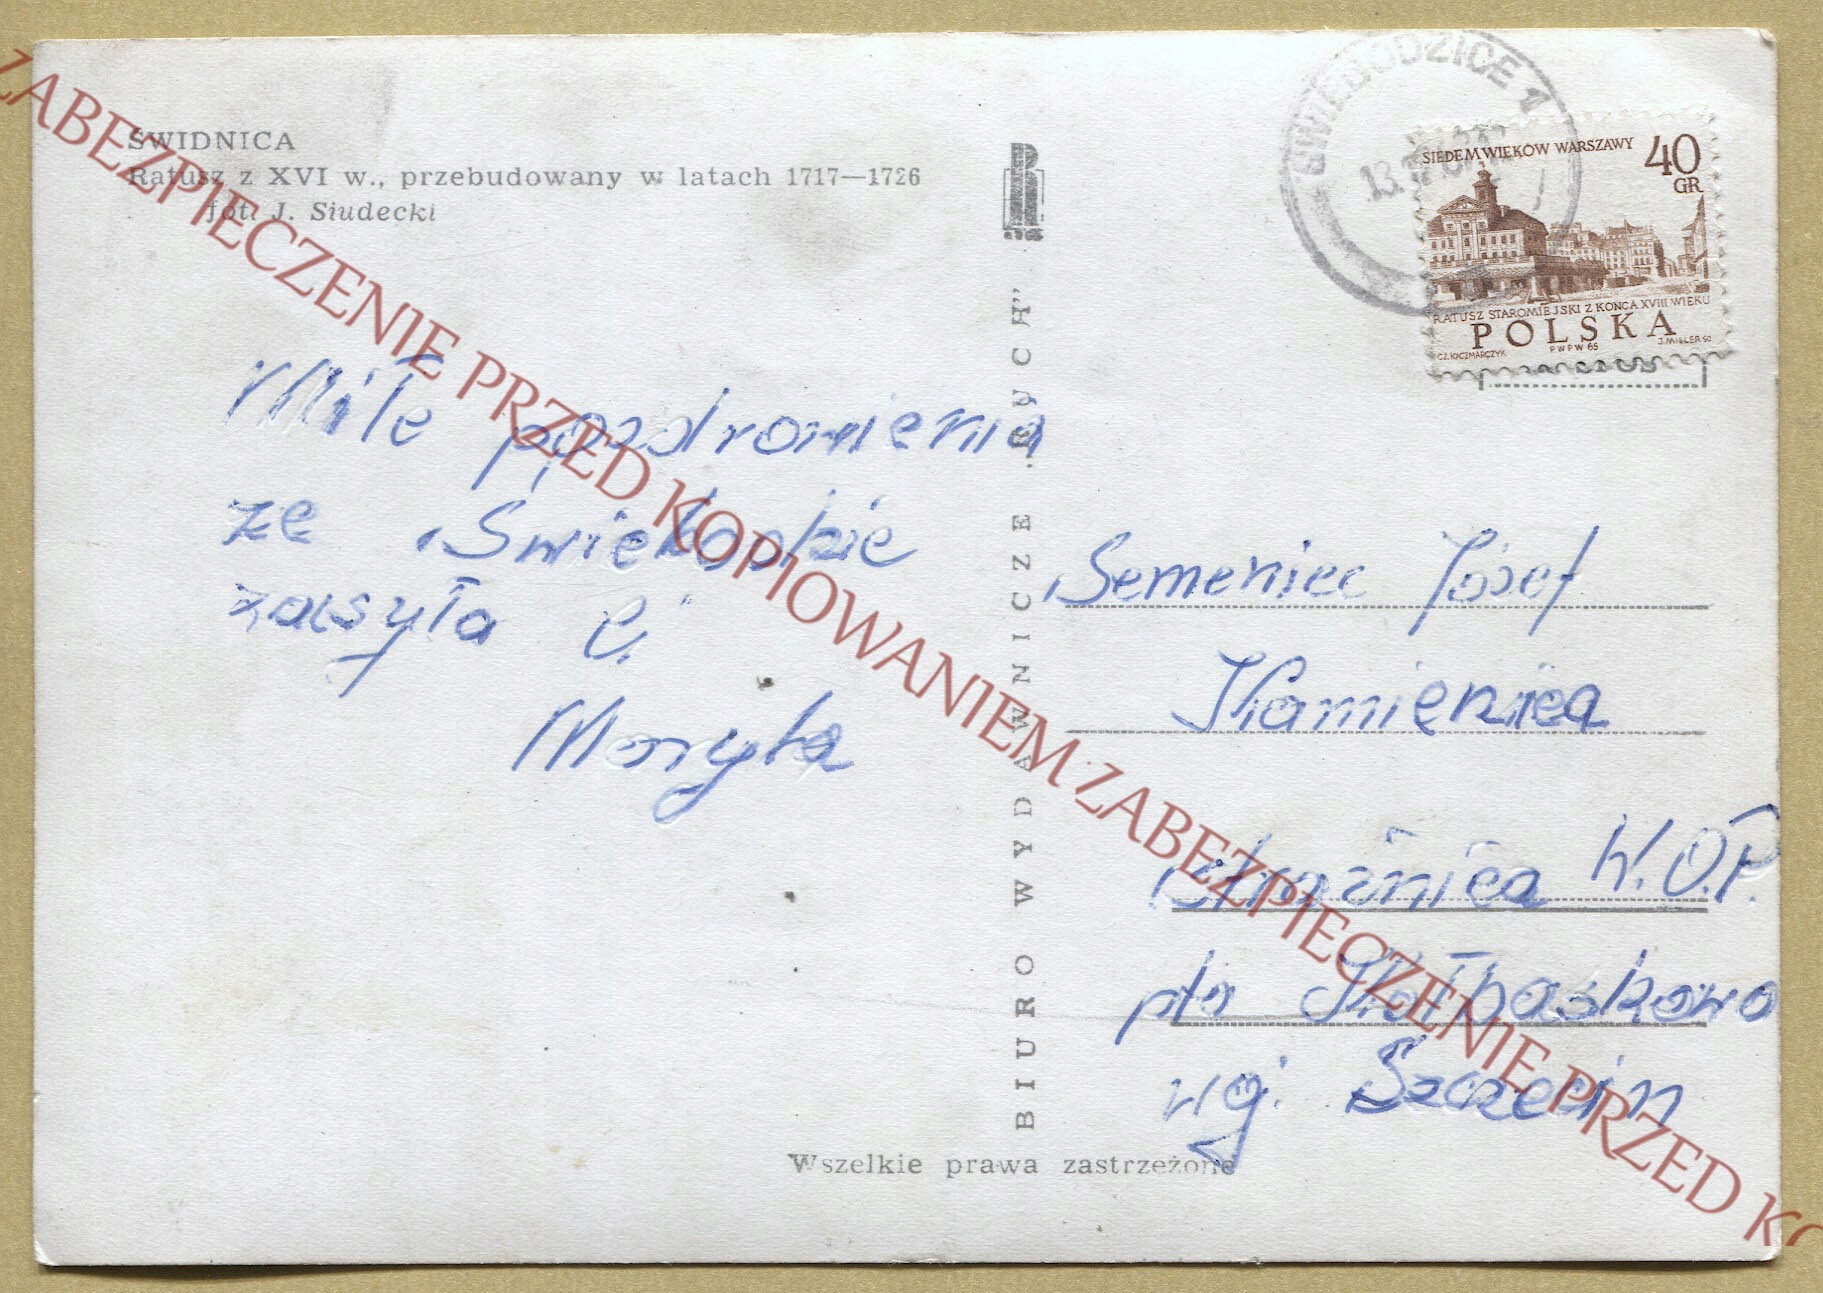 ŚWIDNICA
Ratusz z XVI w., przebudowany w latach 1717—1726
fot. J. Siudecki
Miłe pozdrowienia
ze
zasyła C.
Maryla
BIURO WYDAWNICZE „RUCH”
Wszelkie prawa zastrzeżone
ŚWIEBODZICE 1
SIEDEM WIEKÓW WARSZAWY
40
GR
RATUSZ STAROMIEJSKI Z KOŃCA XVIII WIEKU
POLSKA
CZ. KACZMARCZYK PWPW 65 J. MILLER SC
Semeniec Józef
Kamienica
Strażnica W.O.P.
pta Kołbaskowo
woj. Szczecin
ZABEZPIECZENIE PRZED KOPIOWANIEM · ZABEZPIECZENIE PRZED KO